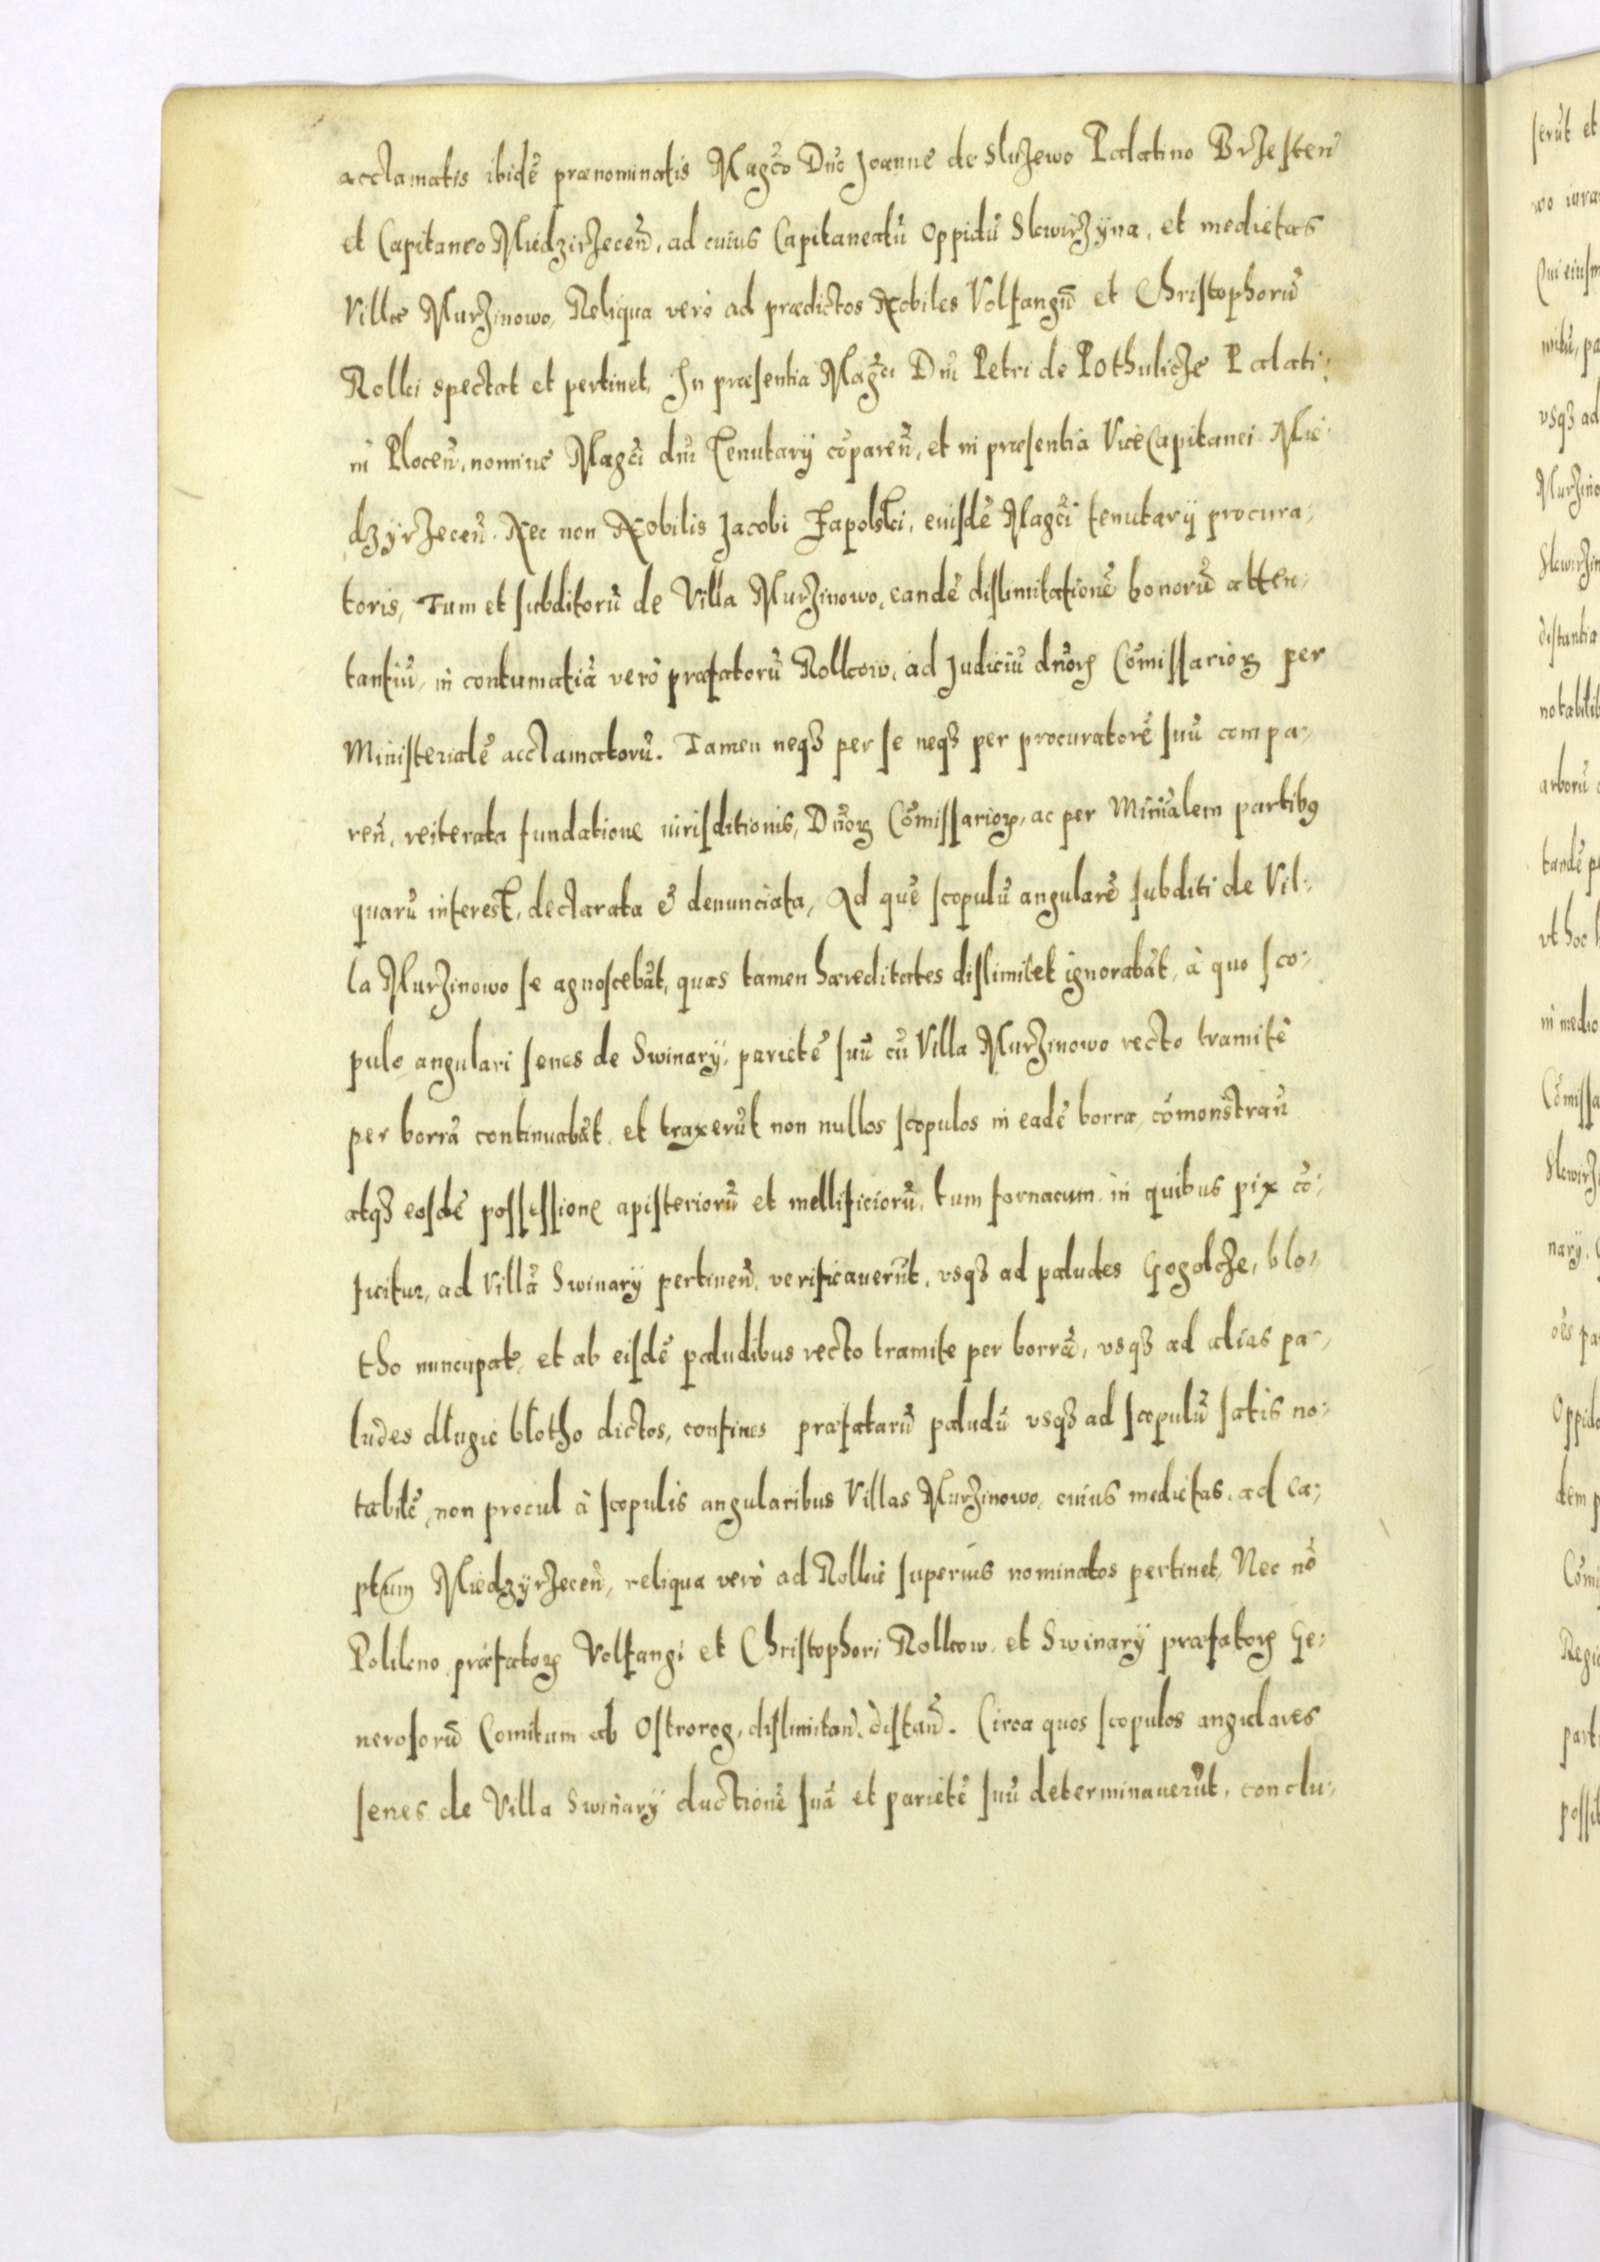 acclamatis ibidē prænominatis Magc̃o Dño Joanne de Sluzewo Palatino Brzesteñ
et Capitaneo Miedzirzeceñ, ad cuius Capitaneatũ Oppidũ Skwirzyna, et medietas
Villæ Murzinowo, Reliqua verò ad prædictos Nobiles Volfangũ et Christophorũ
Rollci spectat et pertinet, In præsentia Magc̃i Dñi Petri de Pothulicze Palati:
ni Ploceñ, nomine Magc̃i dñi Tenutarÿ cõpareñ, et in præsentia ViceCapitanei Mie:
dzÿrzeceñ. Nec non Nobilis Jacobi Zapolski, eiusdē Magc̃i tenutarÿ procura:
toris, Tum et subditorũ de Villa Murzinowo, eandē dislimitationē bonorũ atten:
tantiũ, in contumatiã verò præfatorũ Rollcow, ad Judiciũ dñorꝝ Cõmissarioꝝ per
Ministerialē acclamatorũ. Tamen neqꝫ per se neqꝫ per procuratorē suũ compa:
reñ, reiterata fundatione iurisditionis, Dñoꝝ Cõmissarioꝝ, ac per Miñialem partibꝰ
quarũ interest, declarata ē denunciata, Ad quē scopulũ angularē subditi de Vil:
la Murzinowo se agnoscebãt, quas tamen hæreditates dislimitet ignorabãt, à quo sco:
pulo angulari senes de Swinarÿ, parietē suũ cũ Villa Murzinowo recto tramite
per borrã continuabãt, et traxerũt non nullos scopulos in eadē borra, cõmonstrañ
atqꝫ eosdē possessione apisteriorũ et mellificiorũ, tum fornacum in quibus pix cõ:
ficitur, ad Villã Swinarÿ pertineñ, verificauerũt, vsqꝫ ad paludes Gogolcze, blo:
tho nuncupat, et ab eisdē paludibus recto tramite per borrã, vsqꝫ ad alias pa:
ludes dlugie blotho dictos, confines præfatarũ paludũ vsqꝫ ad scopulũ satis no:
tabilē, non procul à scopulis angularibus Villas Murzinowo, cuius medietas, ad Ca:
ptum Miedzÿrzeceñ, reliqua verò ad Rollcie superius nominatos pertinet, Nec nõ
Polikno præfatoꝝ Volfangi et Christophori Rollcow, et Swinarÿ præfatorꝝ Ge:
nerosorũ Comitum ab Ostrorog, dislimitañ, distañ. Circa quos scopulos angulares
senes de Villa Swinarÿ ductionē suã et parietē suũ determinauerũt, conclu: